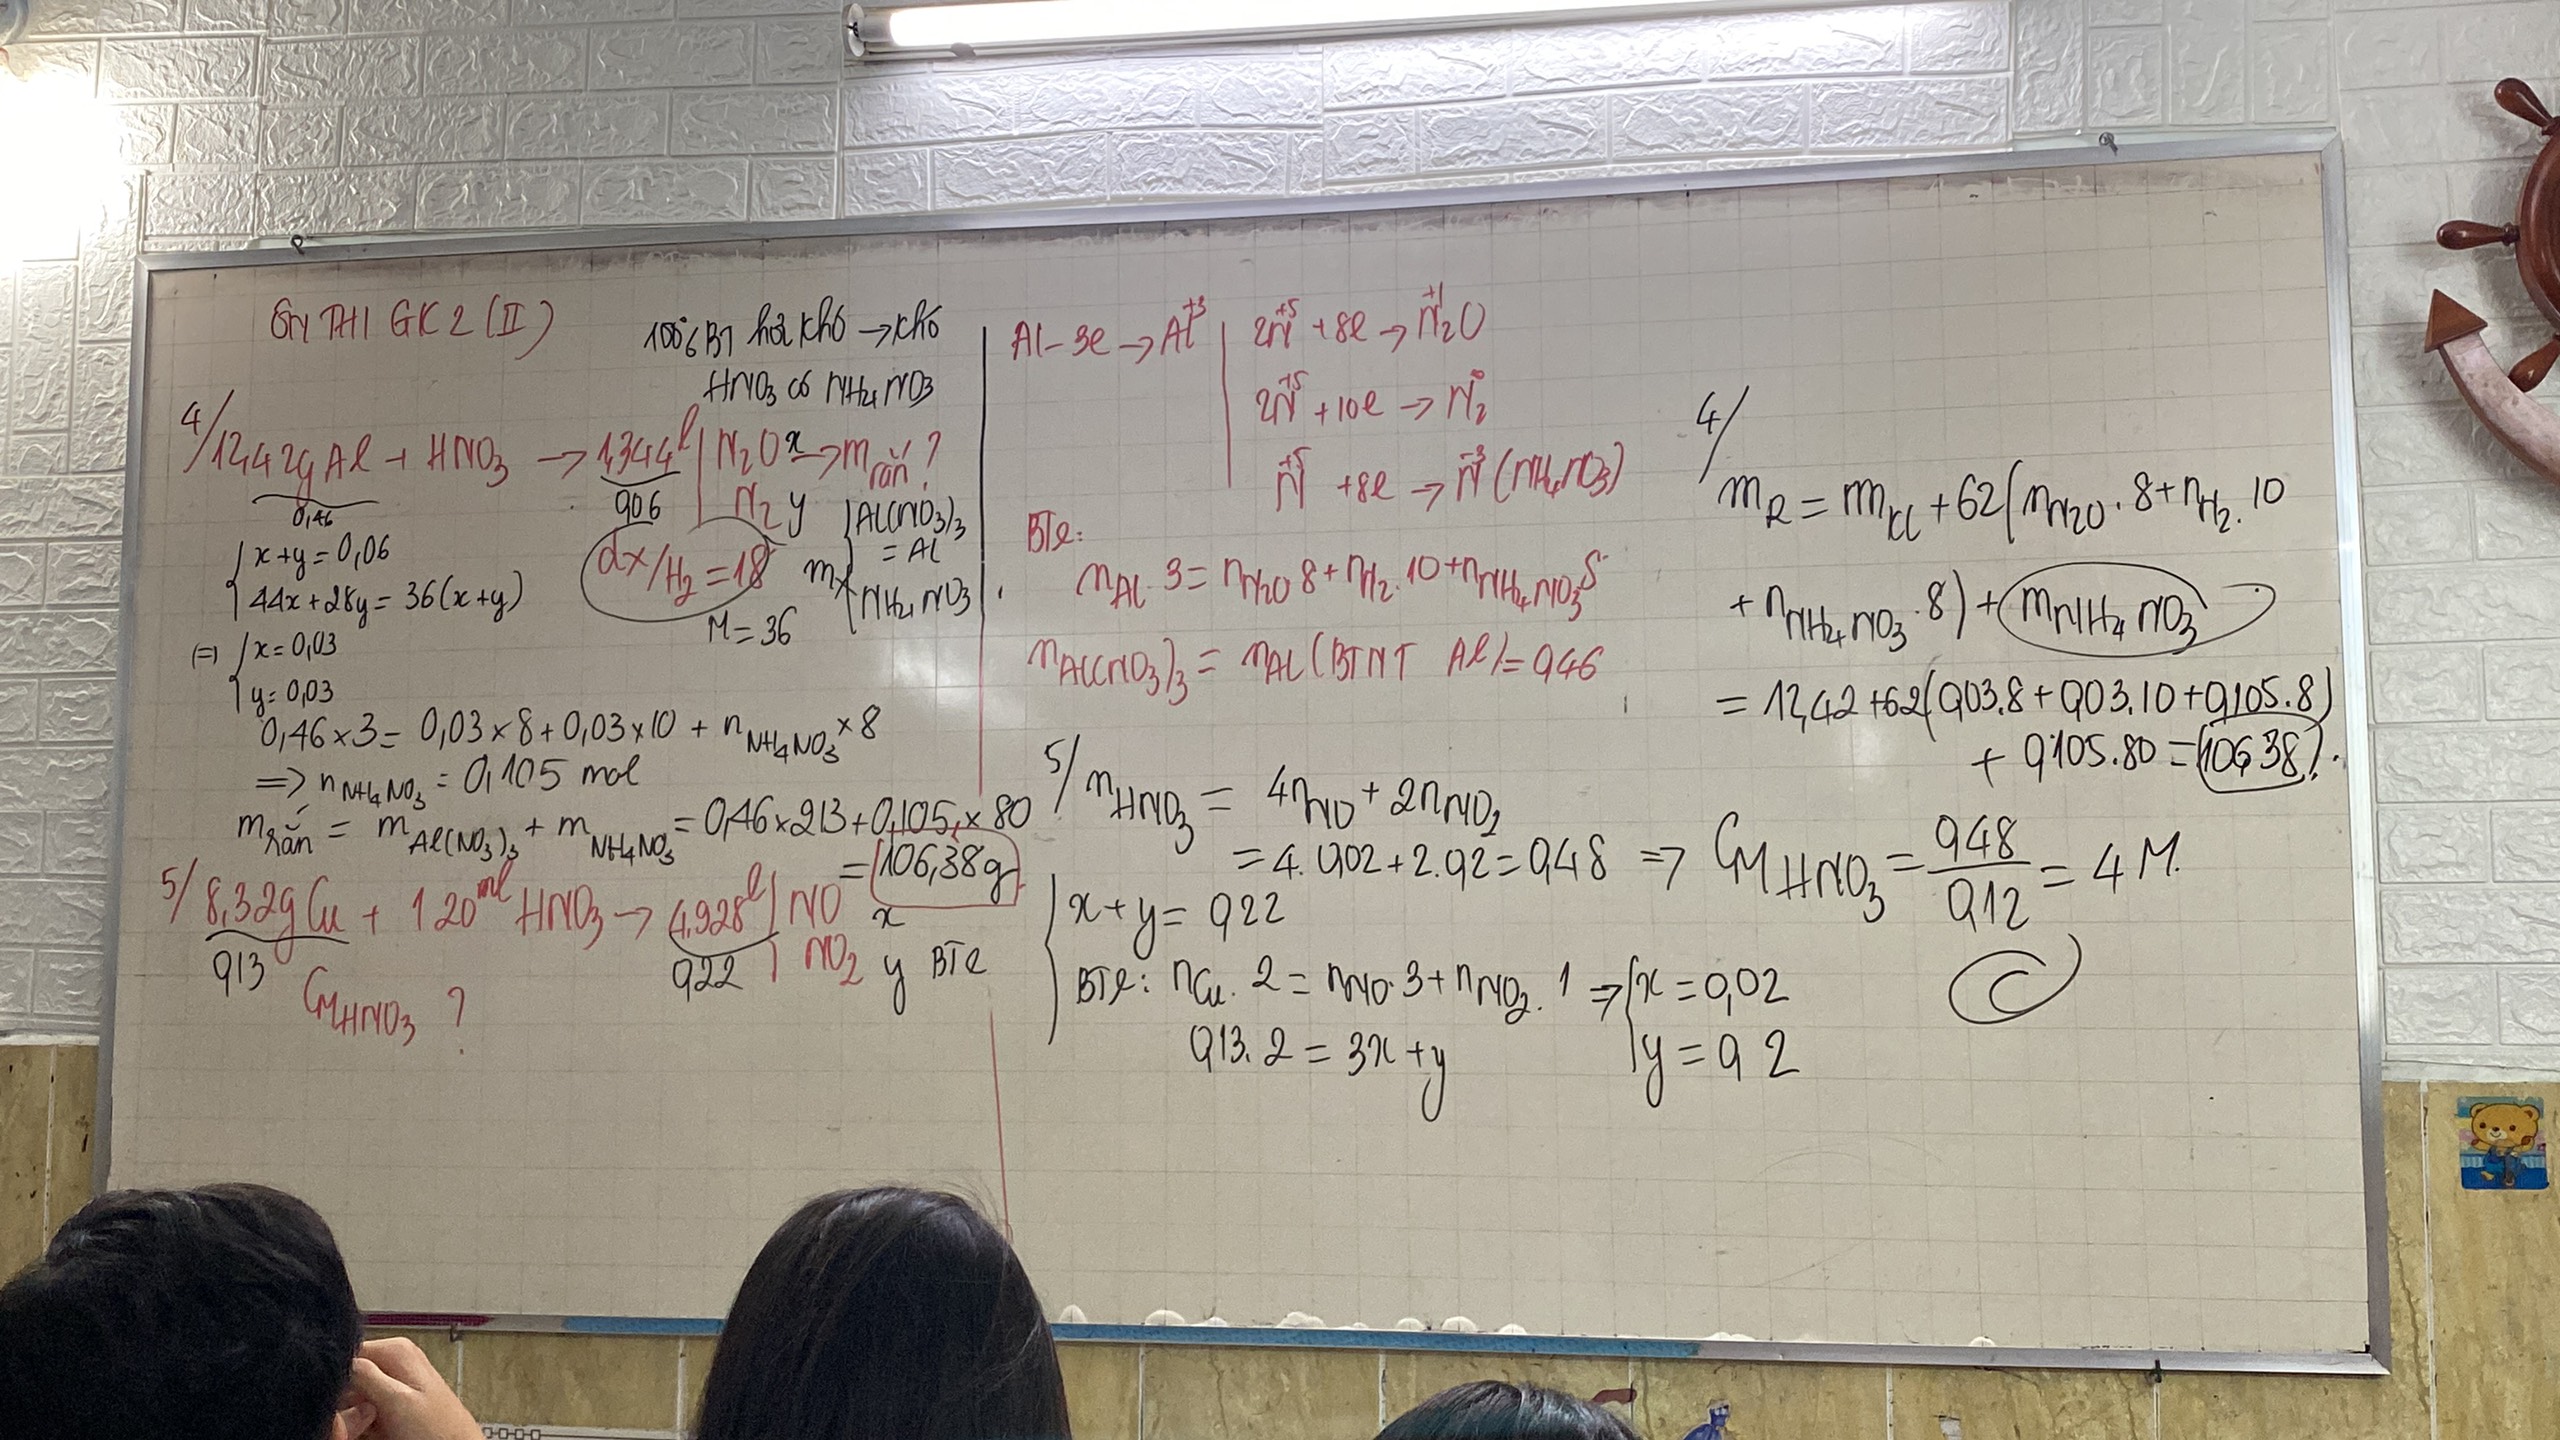 ÔN THI GK2 (II)
100% BT hơi khó → khó
HNO3 có NH4NO3
4/ 12,42g Al + HNO3 → 1,344l | N2O x → m rắn ?
0,46
0,06 | N2 y
{ Al(NO3)3
x+y = 0,06
dx/H2 = 18
= Al
44x+28y = 36(x+y)
NH4NO3
M = 36
(=) { x = 0,03
y = 0,03
0,46 × 3 = 0,03 × 8 + 0,03 × 10 + nNH4NO3 × 8
=> nNH4NO3 = 0,105 mol
m rắn = mAl(NO3)3 + mNH4NO3 = 0,46 × 213 + 0,105 × 80
= 106,38g
5/ 8,32g Cu + 120ml HNO3 → 4,928l | NO x
0,13
0,22 | NO2 y BTe
CM HNO3 ?
Al - 3e → Al+3 | 2N+5 + 8e → N+1 2O
2N+5 + 10e → N2 0
N+5 + 8e → N-3 (NH4NO3)
BTe:
nAl . 3 = nN2O 8 + nN2 . 10 + nNH4NO3 8
nAl(NO3)3 = nAl (BTNT Al) = 0,46
5/ nHNO3 = 4nNO + 2nNO2
= 4. 0,02 + 2. 0,2 = 0,48 => CM HNO3 = 0,48 / 0,12 = 4M.
{ x + y = 0,22
BTe: nCu . 2 = nNO . 3 + nNO2 . 1 => { x = 0,02
0,13. 2 = 3x + y
y = 0,2
C
4/
mR = mKL + 62 (nN2O . 8 + nN2 . 10
+ nNH4NO3 . 8) + mNH4NO3
= 12,42 + 62 (0,03.8 + 0,03.10 + 0,105.8)
+ 0,105.80 = 106,38